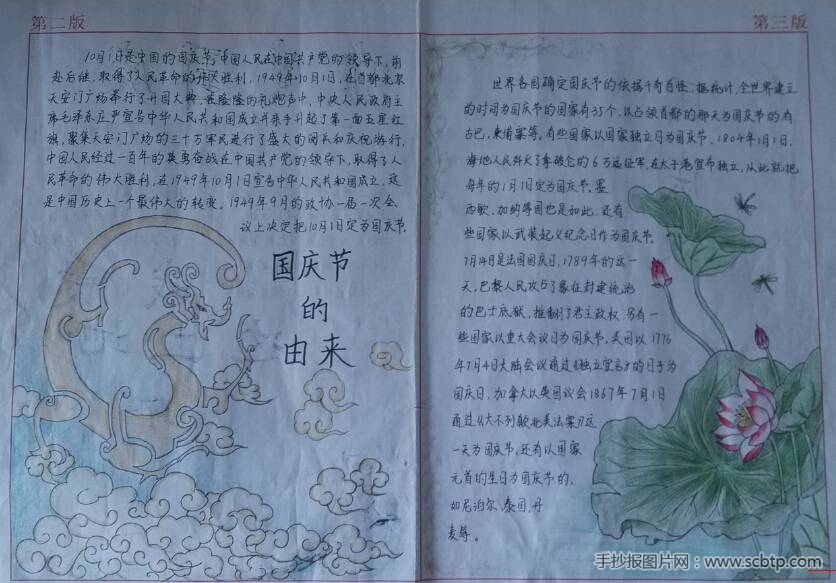 第二版
10月1日是中国的国庆节，中国人民在中国共产党的领导下，前
赴后继，取得了人民革命的伟大胜利，1949年10月1日，在首都北京
天安门广场举行了开国大典，在隆隆的礼炮声中，中央人民政府主
席毛泽东庄严宣告中华人民共和国成立并亲手升起了第一面五星红
旗，聚集天安门广场的三十万军民进行了盛大的阅兵和庆祝游行，
中国人民经过一百年的英勇奋战在中国共产党的领导下，取得了人
民革命的伟大胜利，在1949年10月1日宣告中华人民共和国成立，这
是中国历史上一个最伟大的转变。1949年9月的政协一届一次会
议上决定把10月1日定为国庆节。
国庆节
的
由来
第三版
世界各国确定国庆节的依据千奇百怪，据统计，全世界建立
的时间为国庆节的国家有35个，以占领首都的那天为国庆节的有
古巴，柬埔寨等。有些国家以国家独立日为国庆节，1804年1月1日，
海地人民歼灭了拿破仑的6万远征军，在太子港宣布独立，从此就把
每年的1月1日定为国庆节，墨
西歌，加纳等国也是如此，还有
些国家以武装起义纪念日作为国庆节。
7月14日是法国国庆日，1789年的这一
天，巴黎人民攻占了象征封建统治
的巴士底狱，推翻了君主政权。另有一
些国家以重大会议日为国庆节，美国以1776
年7月4日大陆会议通过《独立宣言》的日子为
国庆日，加拿大以英国议会1867年7月1日
通过《大不列颠北美法案》这
一天为国庆节，还有以国家
元首的生日为国庆节的，
如尼泊尔，泰国，丹
麦等。
手抄报图片网：www.scbtp.com